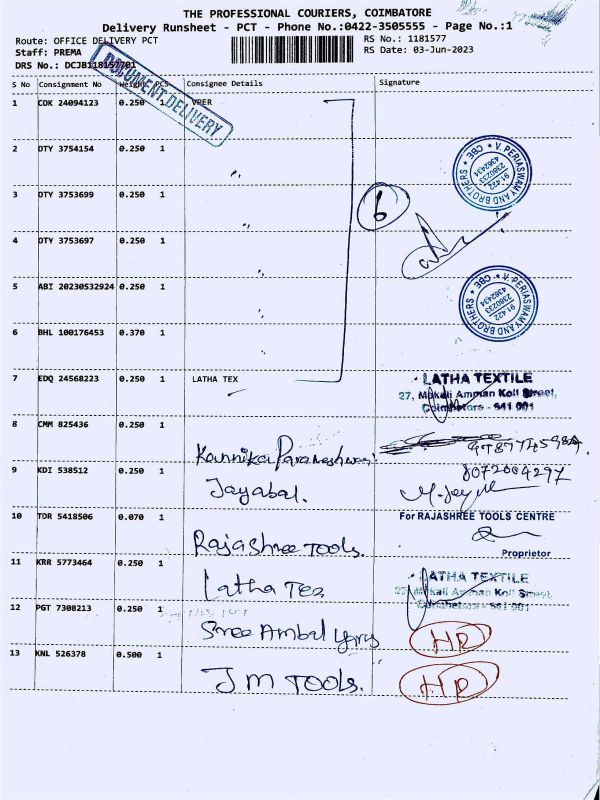 THE PROFESSIONAL COURIERS, COIMBATORE
Delivery Runsheet - PCT - Phone No.:0422-3505555 - Page No.:1
Route: OFFICE DELIVERY PCT
RS No.: 1181577
Staff: PREMA
RS Date: 03-Jun-2023
DRS No.: DCJB118157701
DOCUMENT DELIVERY
S No Consignment No Weight PCS Consignee Details Signature
1 COK 24094123 0.250 1 VPER
2 DTY 3754154 0.250 1 "
V. PERIASWAMY AND BROTHERS * CBE *
91 422
2380233
4362434
3 DTY 3753699 0.250 1 "
6
4 DTY 3753697 0.250 1 "
5 ABI 20230532924 0.250 1 "
V. PERIASWAMY AND BROTHERS * CBE *
91 422
2380233
4362434
6 BHL 100176453 0.370 1 "
7 EDQ 24568223 0.250 1 LATHA TEX
LATHA TEXTILE
27, Makali Amman Koil Street,
Coimbatore - 641 001
8 CMM 825436 0.250 1 Kannika Parameshwari
9 KDI 538512 0.250 1 Jayabal.
8072004297
10 TDR 5418506 0.070 1 Rajashree TOOLS.
For RAJASHREE TOOLS CENTRE
Proprietor
11 KRR 5773464 0.250 1 Latha Tex
LATHA TEXTILE
27, Makali Amman Koil Street,
Coimbatore - 641 001
12 PGT 7308213 0.250 1 Shree Ambal
13 KNL 526378 0.500 1 JM TOOLS.